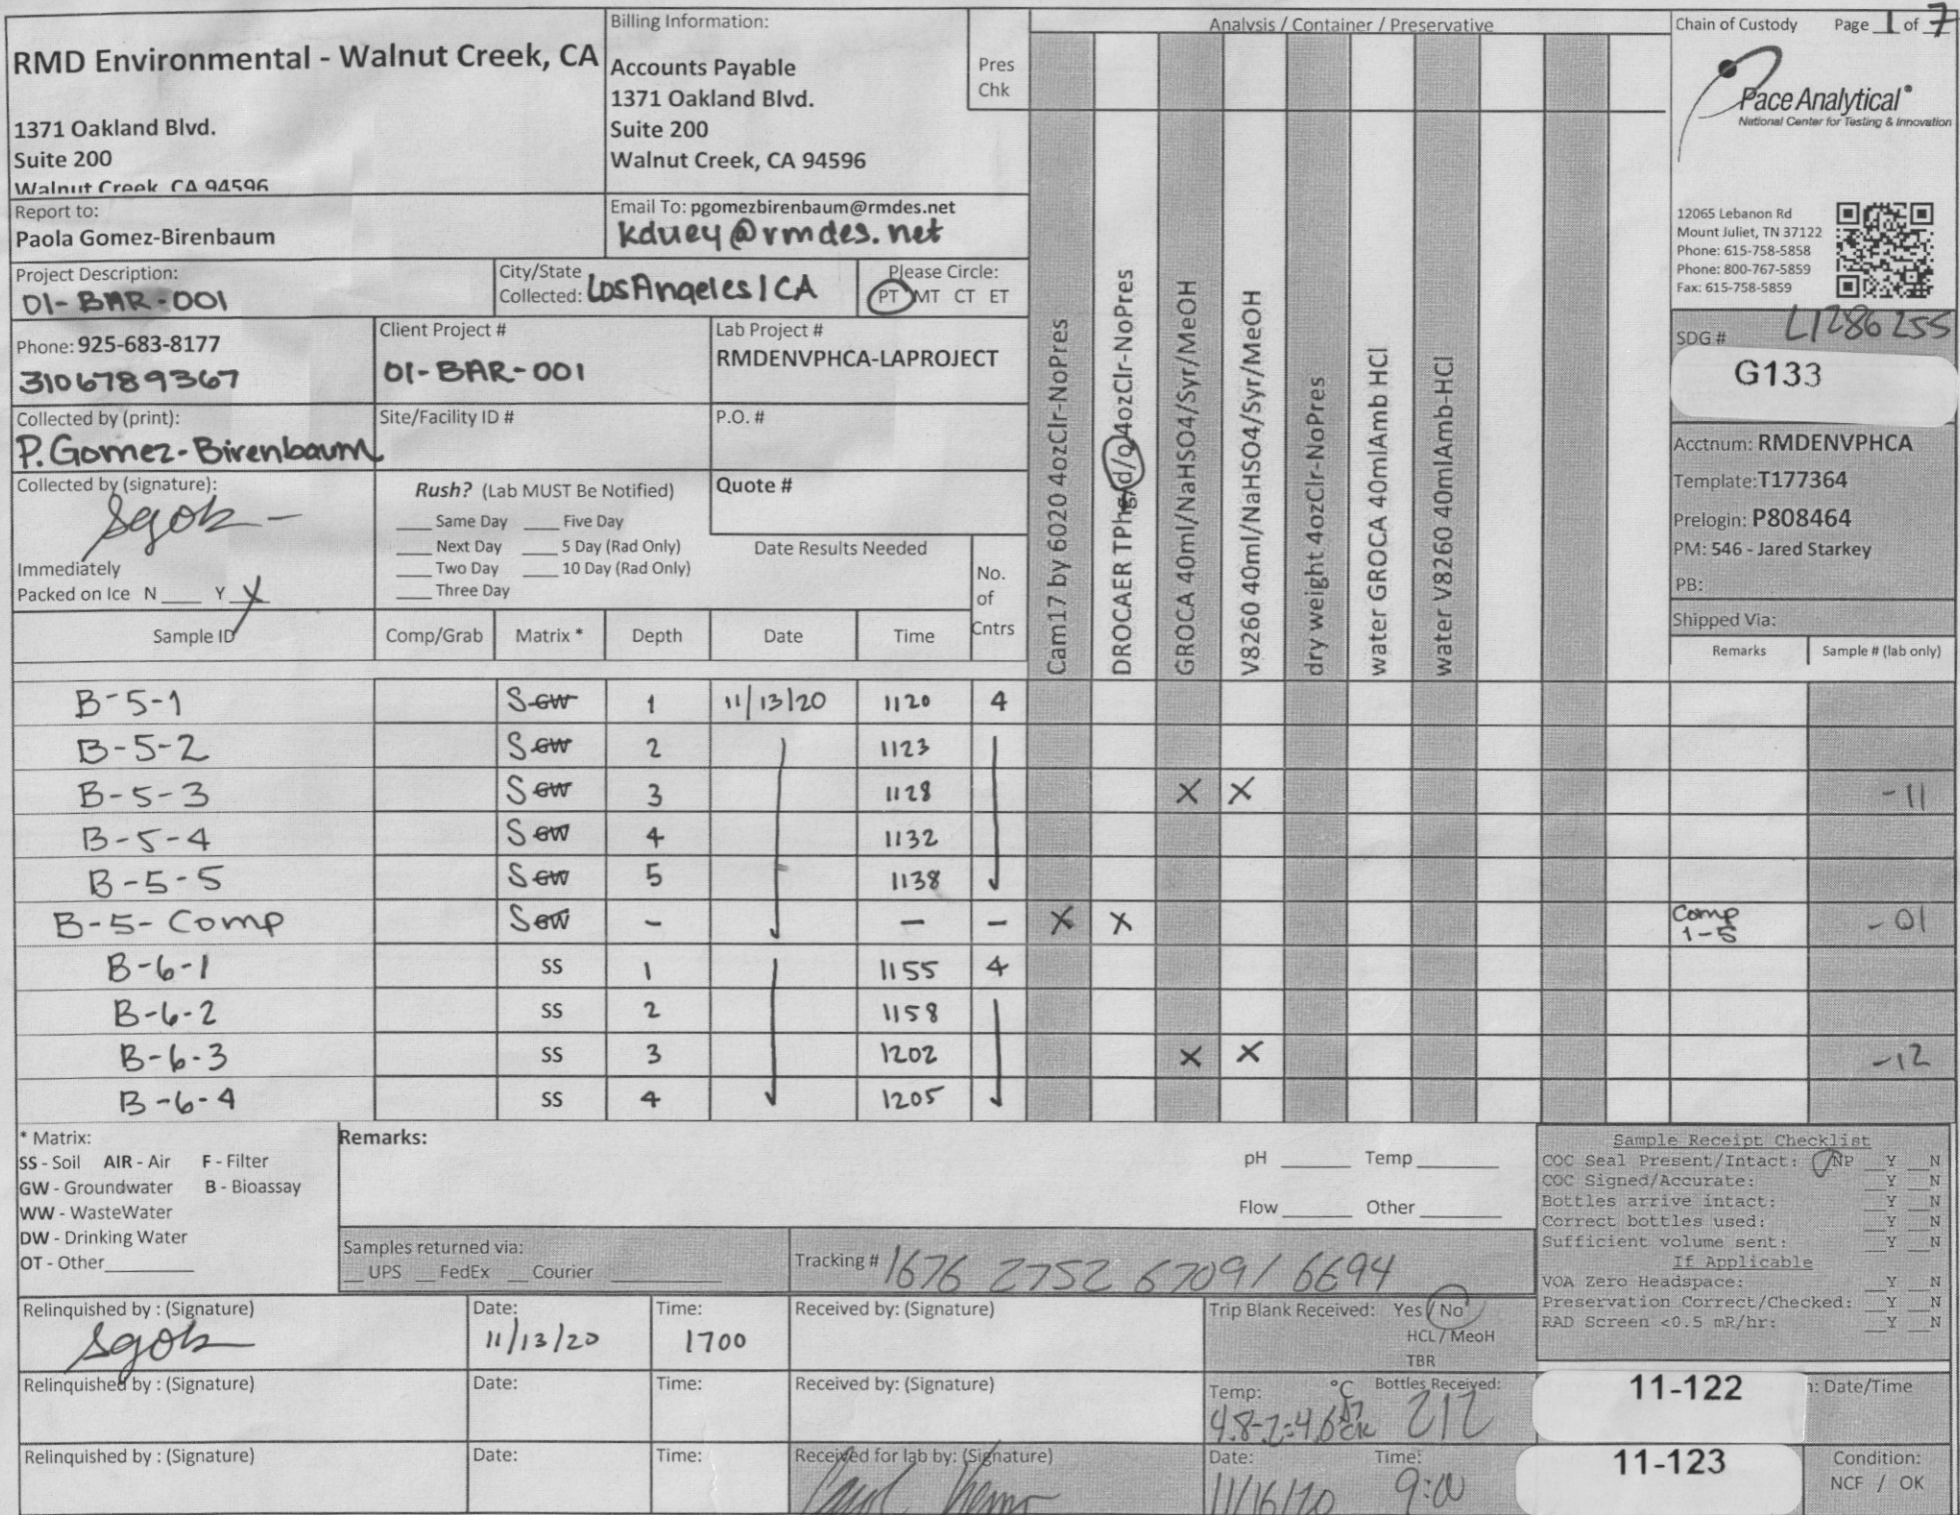 RMD Environmental - Walnut Creek, CA
1371 Oakland Blvd.
Suite 200
Walnut Creek, CA 94596
Billing Information:
Accounts Payable
1371 Oakland Blvd.
Suite 200
Walnut Creek, CA 94596
Pres
Chk
Analysis / Container / Preservative
Chain of Custody Page 1 of 7
Pace Analytical®
National Center for Testing & Innovation
12065 Lebanon Rd
Mount Juliet, TN 37122
Phone: 615-758-5858
Phone: 800-767-5859
Fax: 615-758-5859
Report to:
Paola Gomez-Birenbaum
Email To: pgomezbirenbaum@rmdes.net
kduey@rmdes.net
Project Description:
01-BAR-001
City/State
Collected: Los Angeles / CA
Please Circle:
PT MT CT ET
Phone: 925-683-8177
3106789367
Client Project #
01-BAR-001
Lab Project #
RMDENVPHCA-LAPROJECT
Collected by (print):
P. Gomez-Birenbaum
Site/Facility ID #
P.O. #
Collected by (signature):
Rush? (Lab MUST Be Notified)
___ Same Day ___ Five Day
___ Next Day ___ 5 Day (Rad Only)
___ Two Day ___ 10 Day (Rad Only)
___ Three Day
Quote #
Date Results Needed
Immediately
Packed on Ice N ___ Y X
No.
of
Cntrs
Cam17 by 6020 4ozClr-NoPres
DROCAER TPhg/d/o 4ozClr-NoPres
GROCA 40ml/NaHSO4/Syr/MeOH
V8260 40ml/NaHSO4/Syr/MeOH
dry weight 4ozClr-NoPres
water GROCA 40mlAmb HCl
water V8260 40mlAmb-HCl
SDG # L1286255
G133
Acctnum: RMDENVPHCA
Template: T177364
Prelogin: P808464
PM: 546 - Jared Starkey
PB:
Shipped Via:
Sample ID Comp/Grab Matrix * Depth Date Time Remarks Sample # (lab only)
B-5-1 S GW 1 11/13/20 1120 4
B-5-2 S GW 2 1123
B-5-3 S GW 3 1128 X X -11
B-5-4 S GW 4 1132
B-5-5 S GW 5 1138
B-5-Comp S GW - - - X X Comp 1-5 -01
B-6-1 SS 1 1155 4
B-6-2 SS 2 1158
B-6-3 SS 3 1202 X X -12
B-6-4 SS 4 1205
* Matrix:
SS - Soil AIR - Air F - Filter
GW - Groundwater B - Bioassay
WW - WasteWater
DW - Drinking Water
OT - Other
Remarks:
pH ___ Temp ___
Flow ___ Other ___
Samples returned via:
__ UPS __ FedEx __ Courier
Tracking # 1676 2752 6709 / 6694
Sample Receipt Checklist
COC Seal Present/Intact: NP _Y _N
COC Signed/Accurate: _Y _N
Bottles arrive intact: _Y _N
Correct bottles used: _Y _N
Sufficient volume sent: _Y _N
If Applicable
VOA Zero Headspace: _Y _N
Preservation Correct/Checked: _Y _N
RAD Screen <0.5 mR/hr: _Y _N
Relinquished by : (Signature)
Date:
11/13/20
Time:
1700
Received by: (Signature)
Trip Blank Received: Yes / No
HCL / MeoH
TBR
Relinquished by : (Signature)
Date:
Time:
Received by: (Signature)
Temp: °C Bottles Received:
212
11-122
n: Date/Time
Relinquished by : (Signature)
Date:
Time:
Received for lab by: (Signature)
Date:
11/16/20
Time:
9:00
11-123
Condition:
NCF / OK